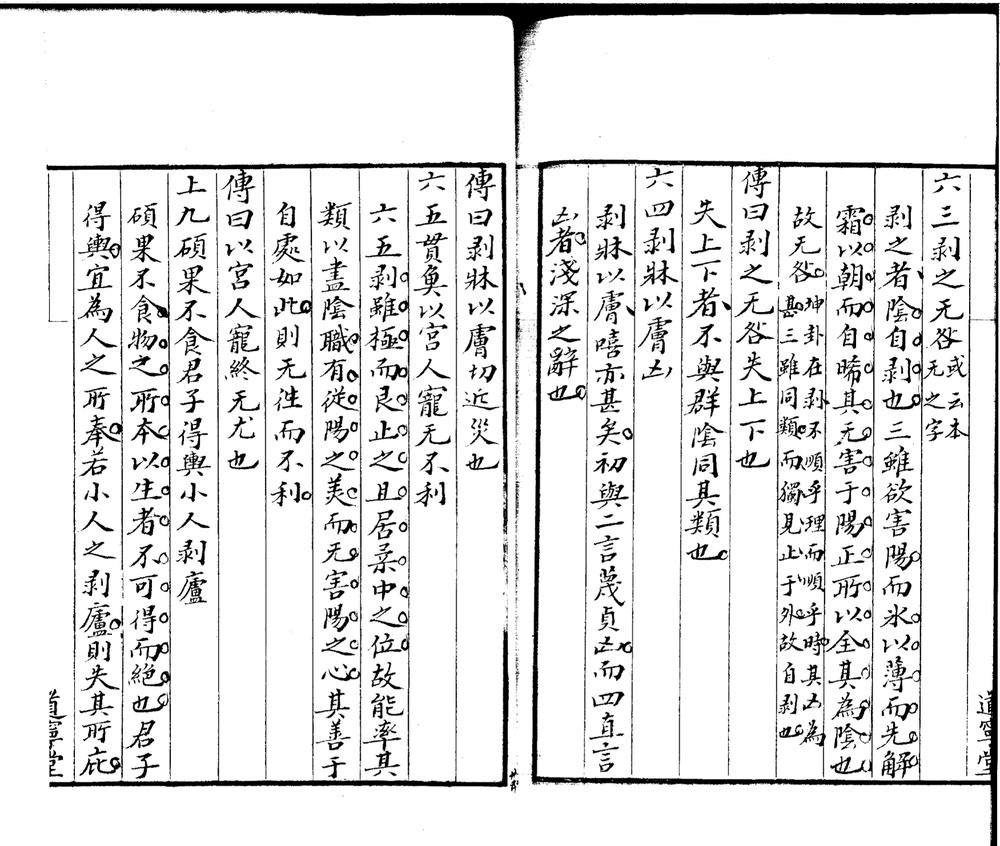 六三剥之无咎或云本无之字
剥之者陰自剥也三雖欲害陽而氷以薄而先解
霜以朝而自晞其无害于陽正所以全其為陰也
故无咎坤卦在剥不順乎理而順乎時其凶為甚三雖同類而獨見止于外故自剥也
傳曰剥之无咎失上下也
失上下者不與群陰同其類也
六四剥牀以膚凶
剥牀以膚嘻亦甚矣初與二言蔑貞凶而四直言
凶者淺深之辭也
道寧堂
傳曰剥牀以膚切近災也
六五貫魚以宮人寵无不利
六五剥雖極而艮止之且居柔中之位故能率其
類以盡陰職有從陽之美而无害陽之心其善于
自處如此則无徃而不利
傳曰以宮人寵終无尤也
上九碩果不食君子得輿小人剥廬
碩果不食物之所本以生者不可得而絕也君子
得輿宜為人之所奉若小人之剥廬則失其所庇
道寧堂